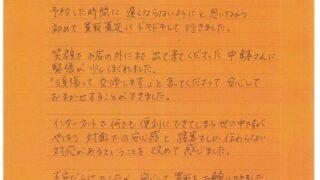 予約した時間に 遅くならないようにと 思いながら
初めて 買取査定に ドキドキして 行きました。
笑顔で お店の外にまで 出て来てくださった 中藤さんに
緊張が 少しほぐれました。
「頑張って 交渉します」と 言ってくださって 安心して
おまかせすることができました。
インターネットで 何でも 便利にできてしまう 世の中ですが
やはり 対面での 安心感と 接客でしか 伝わらない
対応があるということを 改めて 感じました。